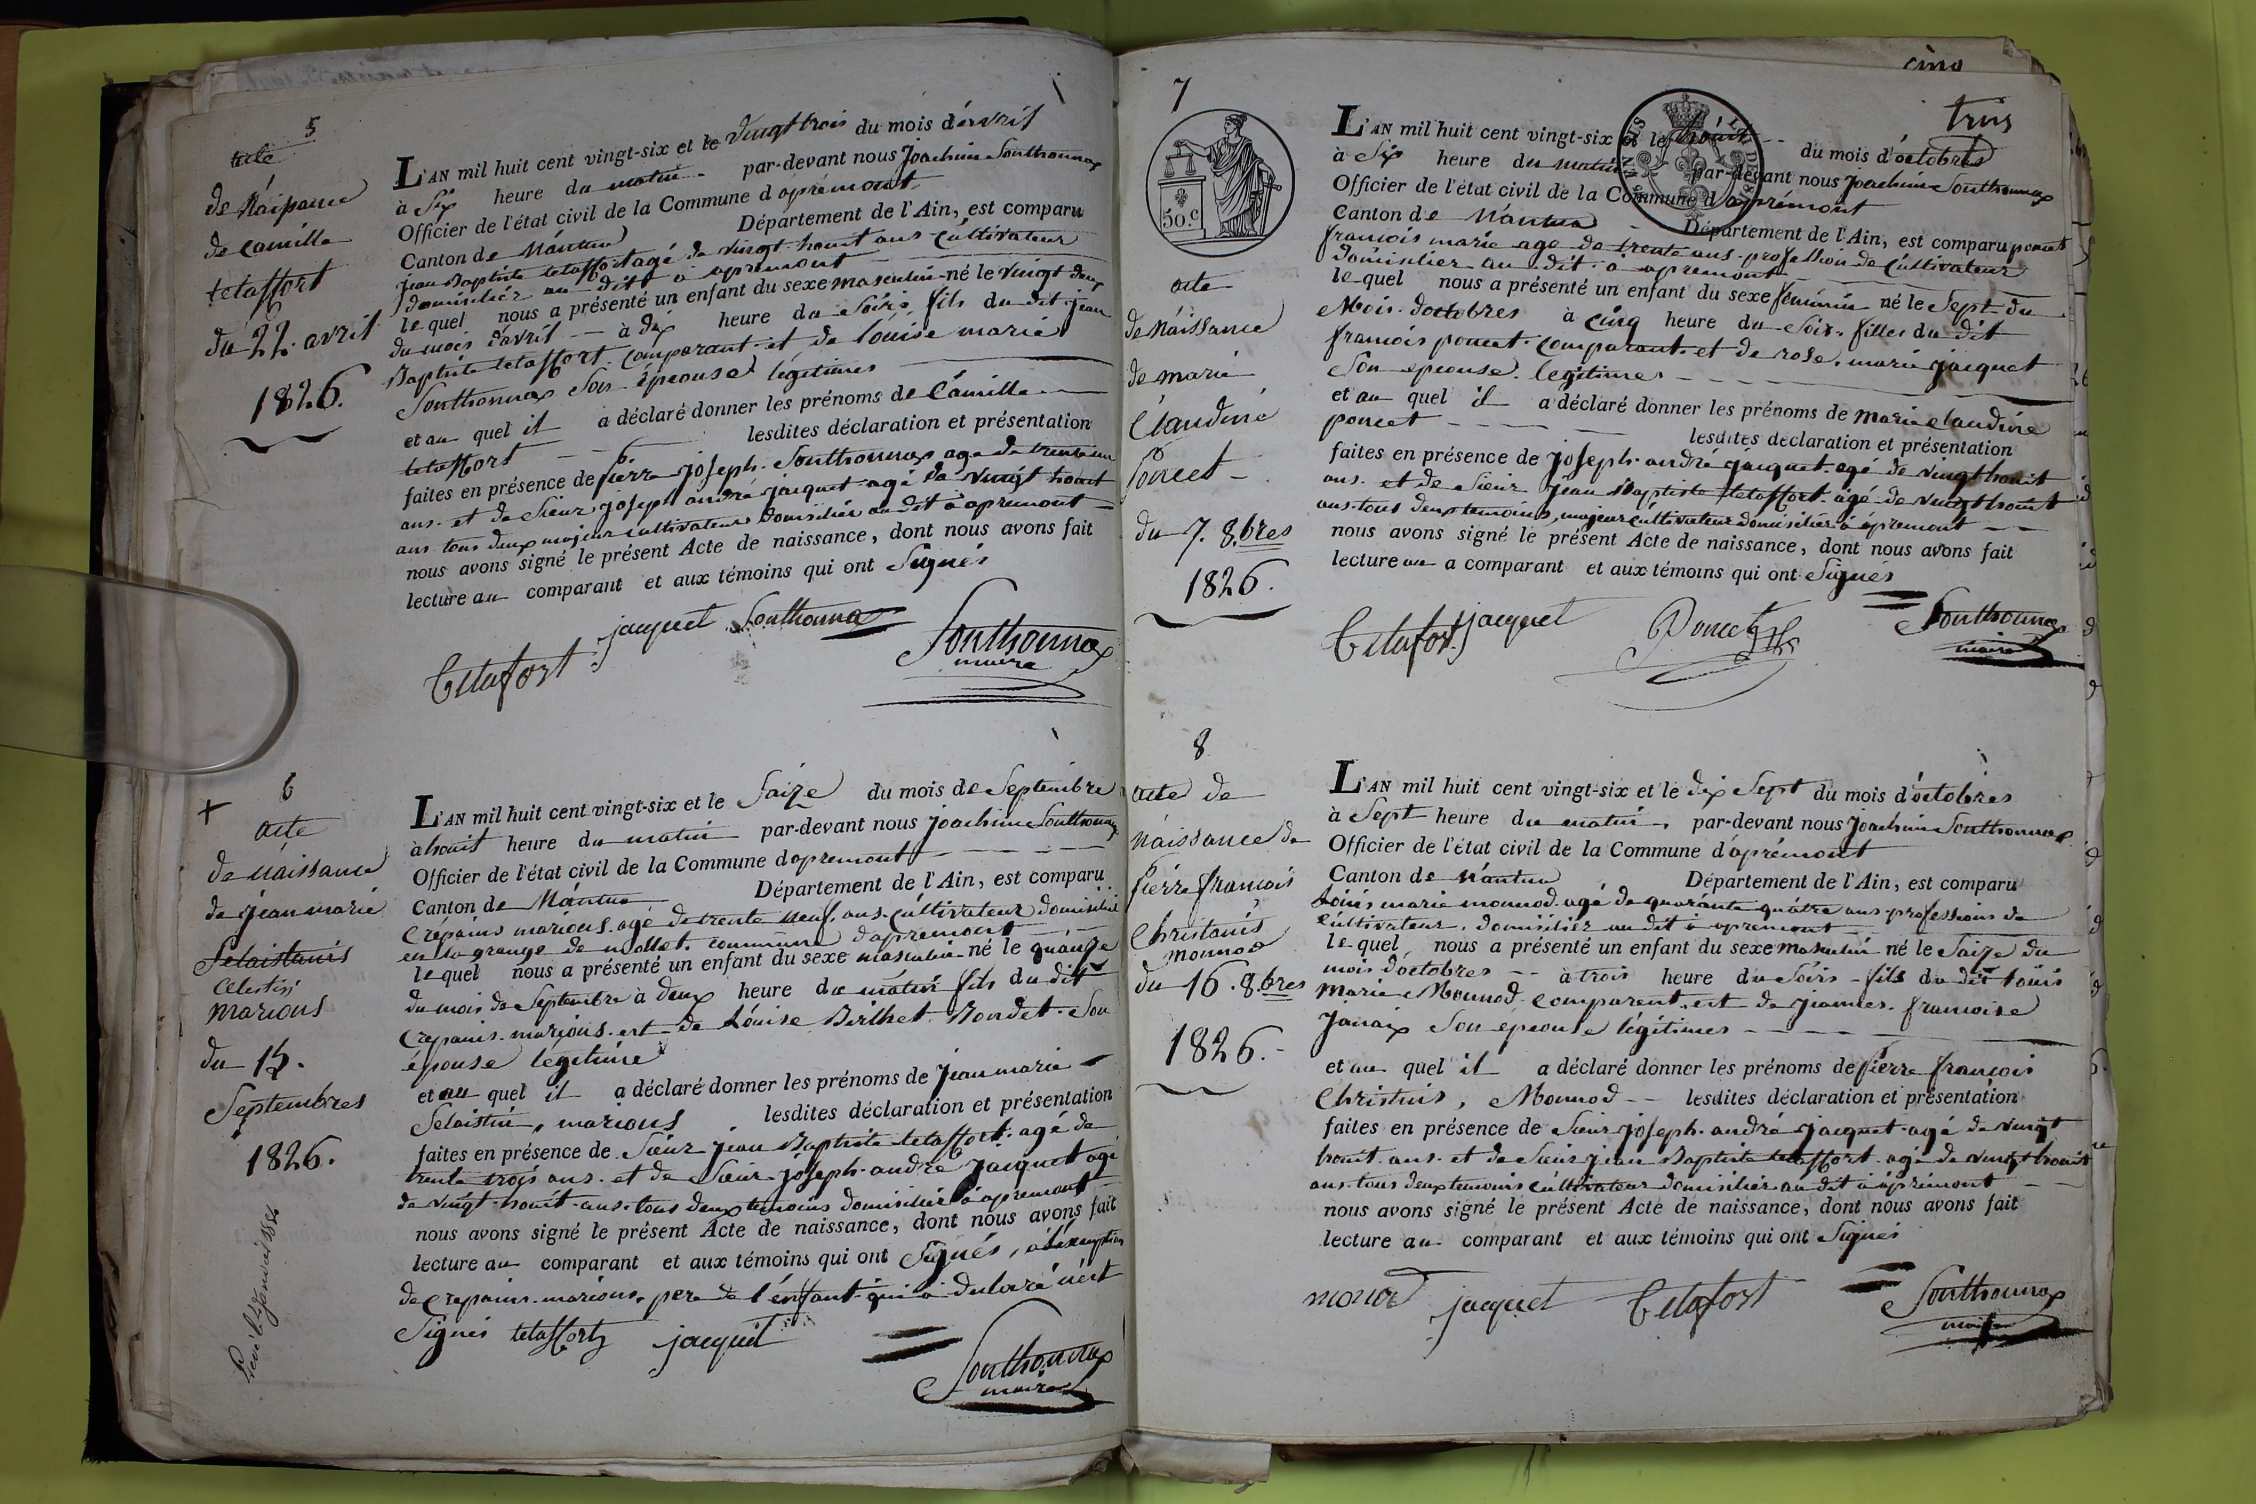 5
acte
de Náissance
de Camille
tetaffort
du 22. avril
1826.
L'AN mil huit cent vingt-six et le vingt trois du mois d'avril
à Six heure du matin par-devant nous Joachim Southonnax
Officier de l'état civil de la Commune d'apremont
Canton de Nántua Département de l'Ain, est comparu
jean Baptiste tetaffort agé de vingt houit ans cúltivateur
domisiliér au dit à apremont
le quel nous a présenté un enfant du sexe masculin né le vingt deux
du mois d'avril à dix heure du Soirs fils du dit jean
Baptiste tetaffort comparant et de loúise marie
Southonnax Son épeouse légitimes
et au quel il a déclaré donner les prénoms de Cámille
tetaffort lesdites déclaration et présentation
faites en présence de pierre joseph Southonnax age de trente un
ans et de Sieur joseph andré jacquet agé de vingt houit
ans tous deux majeur cultivateur domisiliér au dit à apremont
nous avons signé le présent Acte de naissance, dont nous avons fait
lecture au comparant et aux témoins qui ont Signés
jacquet Southonnax
Tetafort Southonnax
maire
+ 6
acte
de náissance
de jean marié
Selaistanis
Celestin
marions
du 15.
Septembres
1826.
L'AN mil huit cent vingt-six et le Saize du mois de Septembre
à houit heure du matin par-devant nous joachim Southonnax
Officier de l'état civil de la Commune d'apremont
Canton de Nántua Département de l'Ain, est comparu
Crepains marions agé de trente neuf ans cúltivateur domisilié
en la grange de mollet commúne d'apremont
le quel nous a présenté un enfant du sexe masculin né le quinze
du mois de Septembre à deux heure du matin fils du dit
Crepains marions et de Loúise Berthet Bondet Son
épouse legitime
et au quel il a déclaré donner les prénoms de jean marie
Selaistin, marions lesdites déclaration et présentation
faites en présence de Sieur jean Baptiste tetaffort agé de
trente trois ans et de Sieur joseph andré jacquet agé
de vingt houit ans tous deux temoins domisiliér à apremont
nous avons signé le présent Acte de naissance, dont nous avons fait
lecture au comparant et aux témoins qui ont Signés, à l'éxeuption
de Crepains marions pere de l'énffant qui a declaré n'éit
Signés tetaffort jacquet
Southonnax
maire
cinq
trois
7
50.c
acte
de Náissance
de marie
Claudine
Poncet
du 7. 8.bres
1826.
L'AN mil huit cent vingt-six et le houit du mois d'óctobres
à Six heure du matin par-devant nous Joachim Southonnax
Officier de l'état civil de la Commune d'aprémont
Canton de Nántua Département de l'Ain, est comparu poncet
francois marie age de trente ans profession de cúltivateur
domisilier au dit à apremont
le quel nous a présenté un enfant du sexe féminin né le Sept du
Mois doctobres à cinq heure du Soir filles du dit
francois poncet comparant et de rose marie jacquet
Son epeouse legitimes
et au quel il a déclaré donner les prénoms de marie claudine
poncet lesdites déclaration et présentation
faites en présence de joseph andré jacquet agé de vingt houit
ans et de Sieur jean Baptiste tetaffort agé de vingt houit
ans tous deux temoins, majeur cúltivateur domisiliér à apremont
nous avons signé le présent Acte de naissance, dont nous avons fait
lecture au a comparant et aux témoins qui ont Signés
Tetafort jacquet Poncet Southonnax
maire
8
acte de
Náissance de
Pierre francois
Christanis
mounod
du 16. 8.bres
1826.
L'AN mil huit cent vingt-six et le dix Sept du mois d'óctobres
à Sept heure du matin, par-devant nous Joachim Southonnax
Officier de l'état civil de la Commune d'aprémont
Canton de Nántua Département de l'Ain, est comparu
Loúis marie mounod agé de quaránte quátre ans professions de
cúltivateur, domisiliér au dit à apremont
le quel nous a présenté un enfant du sexe masculin né le Saize du
mois d'octobres à trois heure du Soirs fils du dit loúis
Marie Mounod comparent et de jeannes francoise
Janaix Son épeouse légitimes
et au quel il a déclaré donner les prénoms de Pierre francois
Christinis, Mounod lesdites déclaration et présentation
faites en présence de Sieur joseph andré jacquet agé de vingt
houit ans et de Sieur jean Baptiste tetaffort agé de vingt houit
ans tous deux temoins cúltivateur domisiliér au dit à apremont
nous avons signé le présent Acte de naissance, dont nous avons fait
lecture au comparant et aux témoins qui ont Signés
monod jacquet Tetafort Southonnax